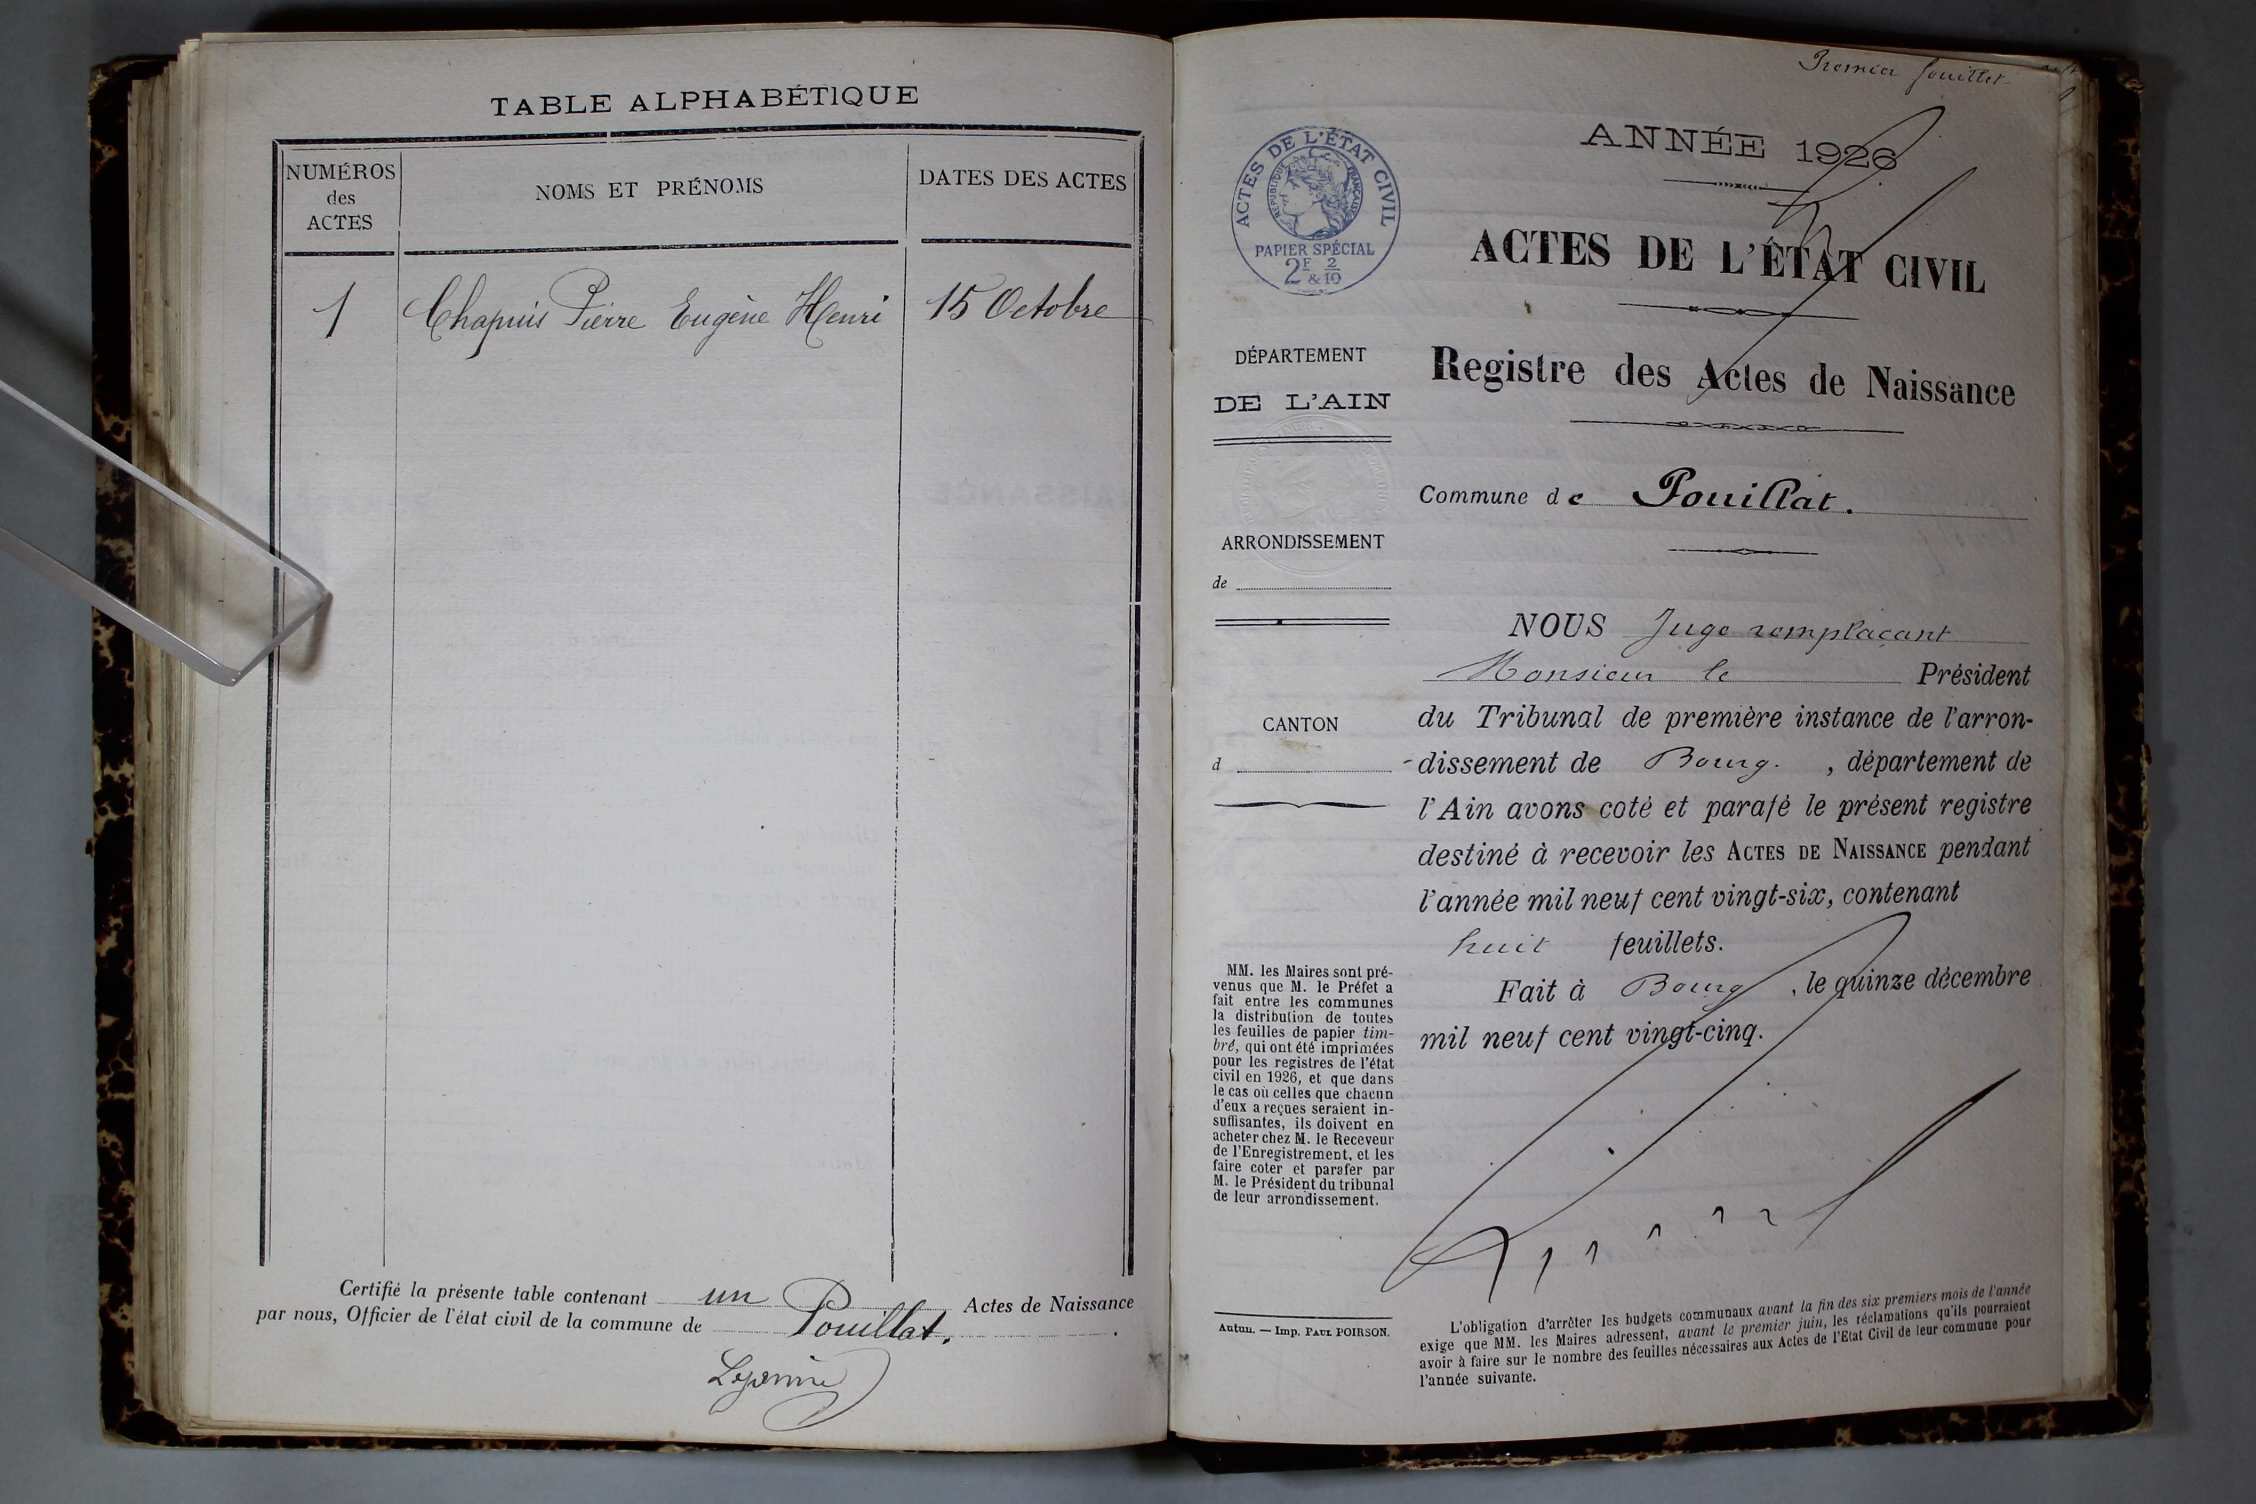 TABLE ALPHABÉTIQUE
NUMÉROS
des
ACTES
NOMS ET PRÉNOMS
DATES DES ACTES
1 Chapuis Pierre Eugène Henri 15 Octobre
Certifié la présente table contenant un Actes de Naissance
par nous, Officier de l'état civil de la commune de Pouillat.
Premier feuillet
ANNÉE 1926
ACTES DE L'ÉTAT CIVIL
RÉPUBLIQUE FRANÇAISE
PAPIER SPÉCIAL
2F & 2/10
ACTES DE L'ÉTAT CIVIL
Registre des Actes de Naissance
DÉPARTEMENT
DE L'AIN
Commune de Pouillat.
ARRONDISSEMENT
de
CANTON
d
NOUS Juge remplaçant
Monsieur le Président
du Tribunal de première instance de l'arron-
dissement de Bourg. , département de
l'Ain avons coté et parafé le présent registre
destiné à recevoir les ACTES DE NAISSANCE pendant
l'année mil neuf cent vingt-six, contenant
huit feuillets.
Fait à Bourg , le quinze décembre
mil neuf cent vingt-cinq.
MM. les Maires sont pré-
venus que M. le Préfet a
fait entre les communes
la distribution de toutes
les feuilles de papier tim-
bré, qui ont été imprimées
pour les registres de l'état
civil en 1926, et que dans
le cas où celles que chacun
d'eux a reçues seraient in-
suffisantes, ils doivent en
acheter chez M. le Receveur
de l'Enregistrement, et les
faire coter et parafer par
M. le Président du tribunal
de leur arrondissement.
Autun. — Imp. PAUL POIRSON.
L'obligation d'arrêter les budgets communaux avant la fin des six premiers mois de l'année
exige que MM. les Maires adressent, avant le premier juin, les réclamations qu'ils pourraient
avoir à faire sur le nombre des feuilles nécessaires aux Actes de l'Etat Civil de leur commune pour
l'année suivante.